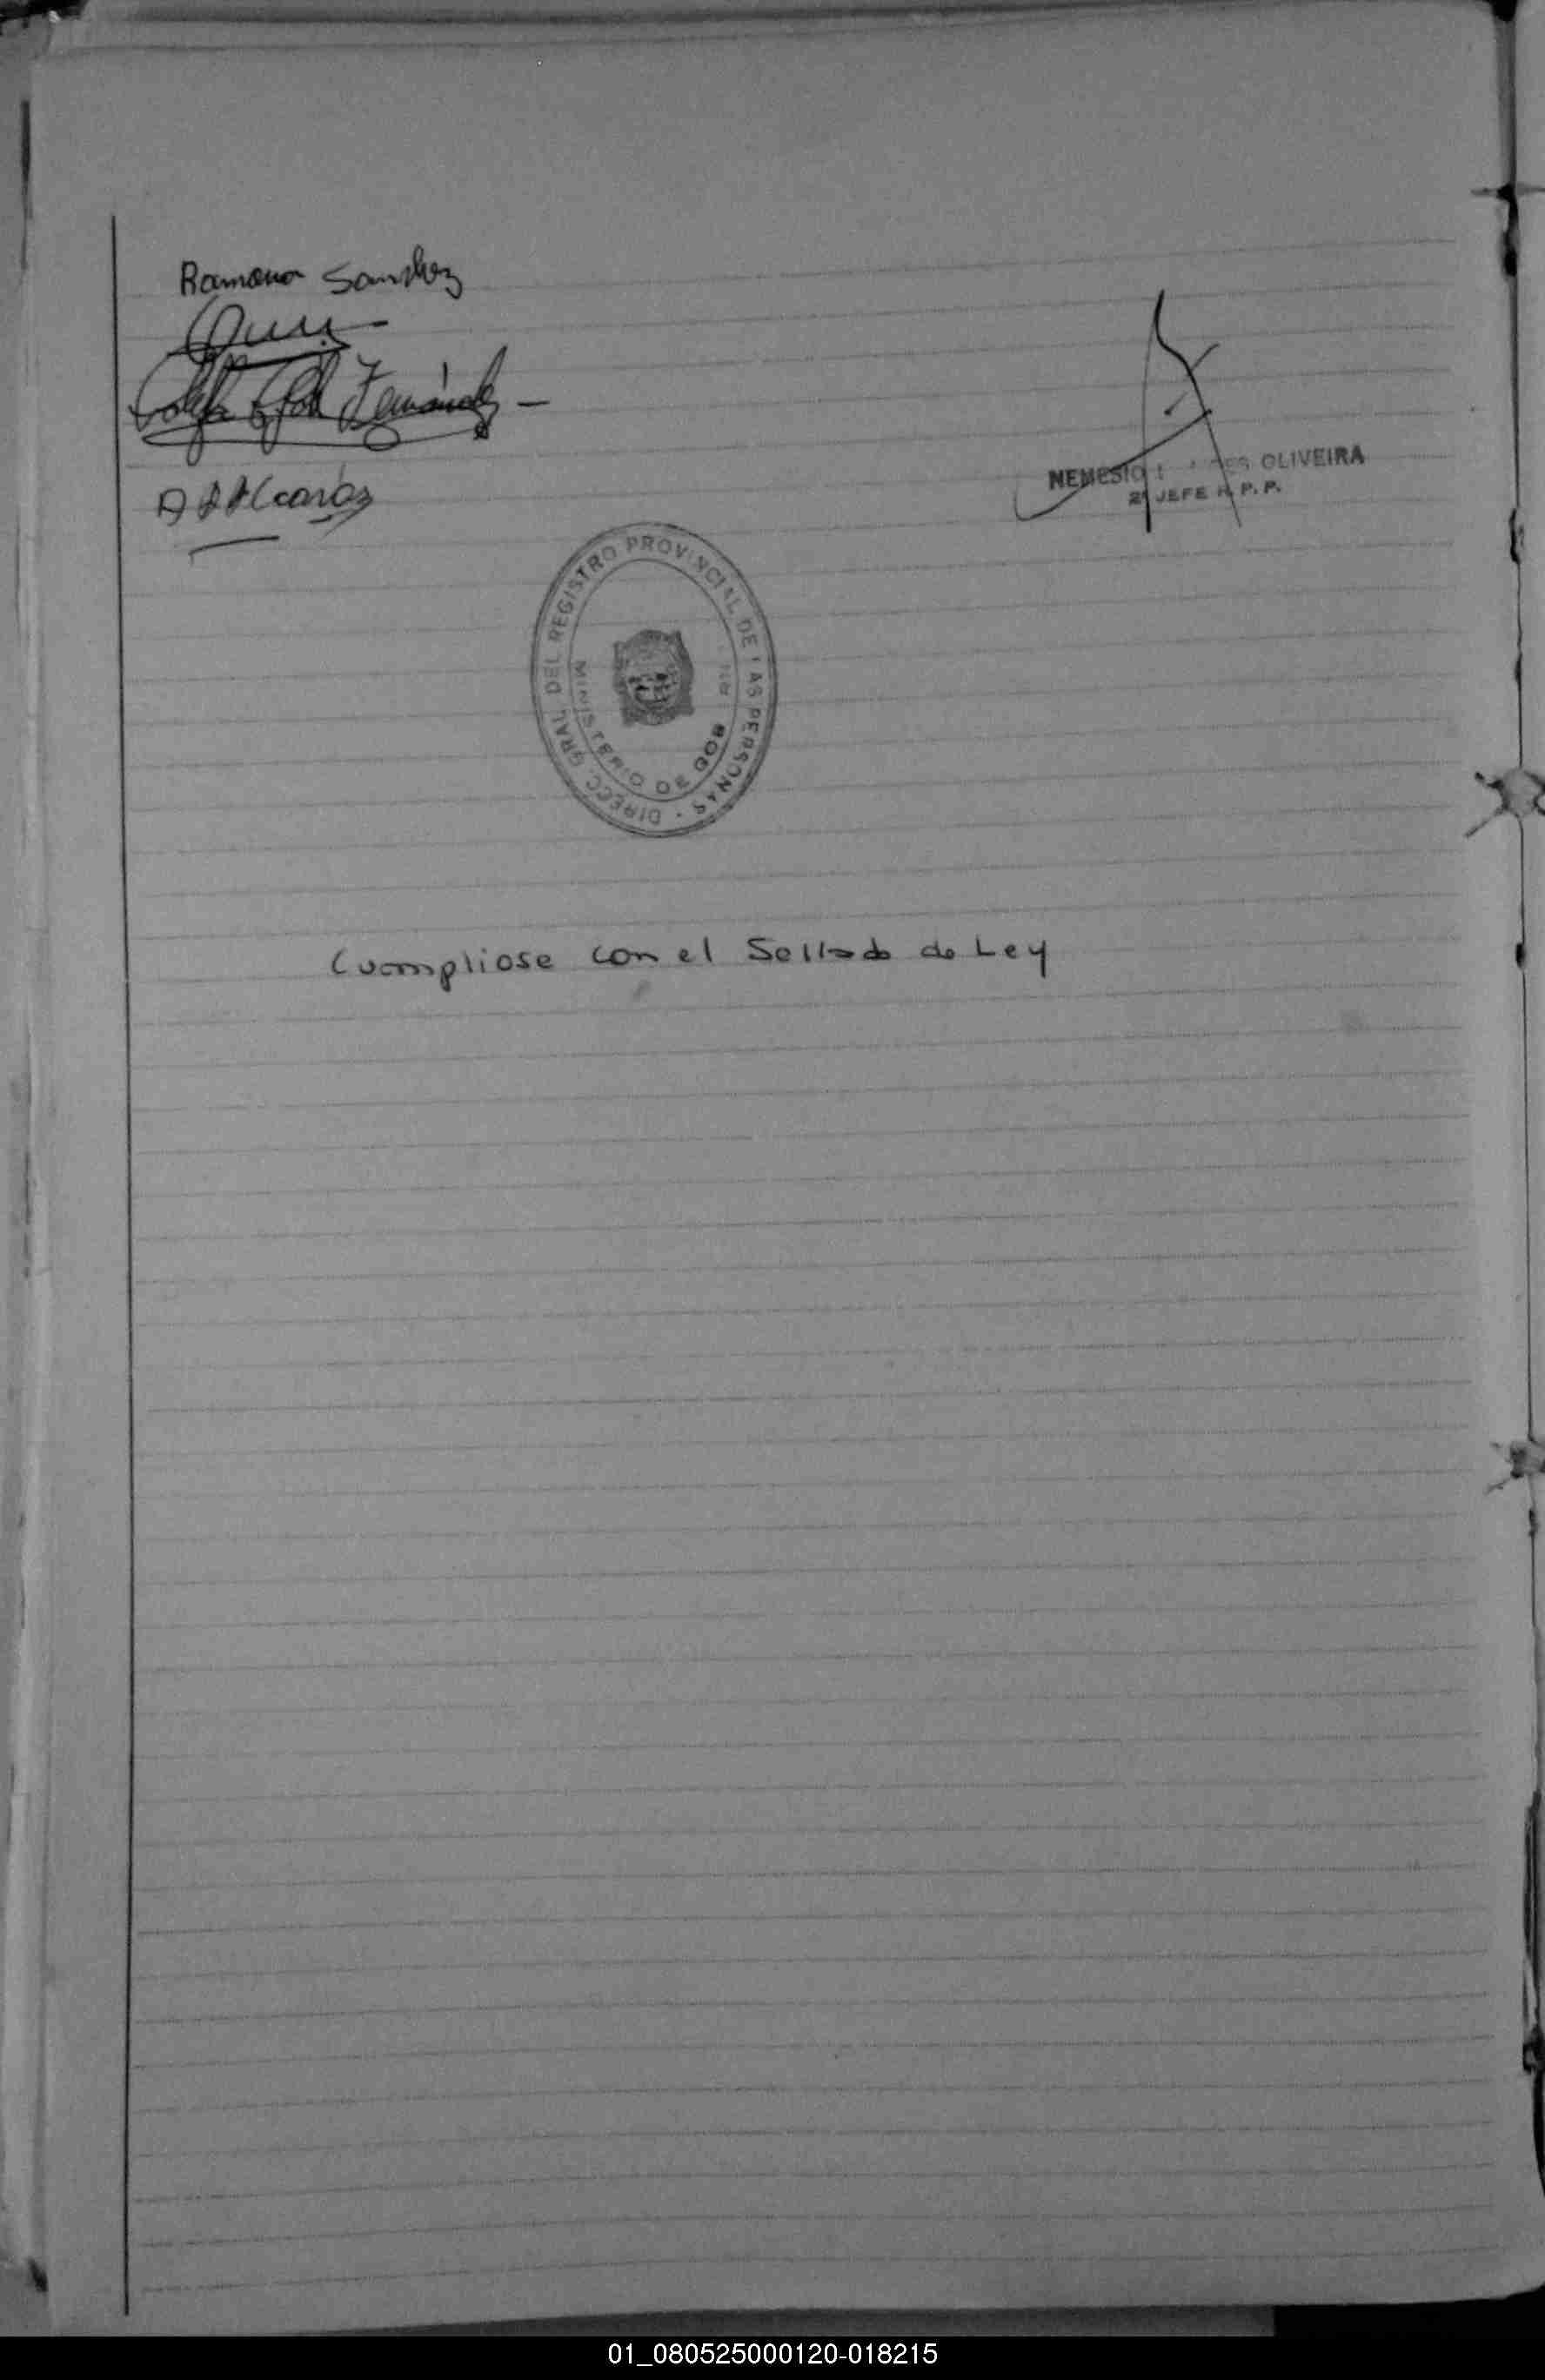 Ramona Sanchez
Fernández
A Alcaráz
NEMESIO OLIVEIRA
2º JEFE R. P. P.
DIRECC. GRAL. DEL REGISTRO PROVINCIAL DE LAS PERSONAS
MINISTERIO DE GOB
Cumpliose con el Sellado de Ley
01_080525000120-018215